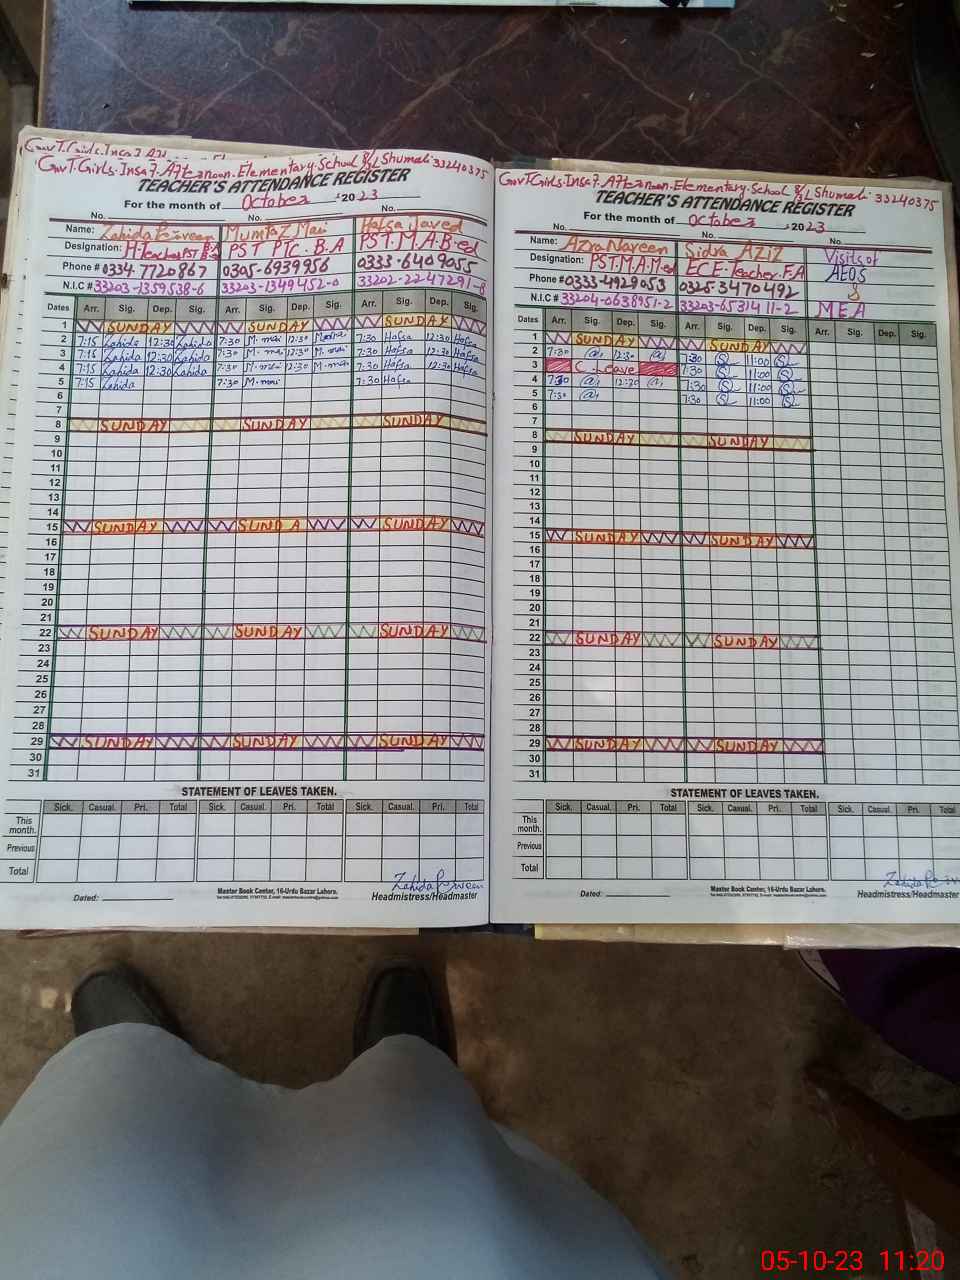 GovT.Girls.Insaf.Afternoon.Elementary.School 8/SL Shumali 33240375
TEACHER'S ATTENDANCE REGISTER
For the month of October 2023
No. No. No.
Name: Zahida Perveen Mumtaz Mai Hafsa Javed
Designation: H.Teacher PST B.A PST PTC. B.A PST.M.A.B-ed
Phone # 0334-7720867 0305-6939956 0333-6409055
N.I.C # 33203-1359538-6 33203-1349452-0 33202-2247291-8
Dates Arr. Sig. Dep. Sig. Arr. Sig. Dep. Sig. Arr. Sig. Dep. Sig.
1 SUNDAY SUNDAY SUNDAY
2 7:15 Zahida 12:30 Zahida 7:30 M. mai 12:30 M. mai 7:30 Hafsa 12:30 Hafsa
3 7:15 Zahida 12:30 Zahida 7:30 M. mai 12:30 M. mai 7:30 Hafsa 12:30 Hafsa
4 7:15 Zahida 12:30 Zahida 7:30 M. mai 12:30 M. mai 7:30 Hafsa 12:30 Hafsa
5 7:15 Zahida 7:30 M. mai 7:30 Hafsa
6
7
8 SUNDAY SUNDAY SUNDAY
9
10
11
12
13
14
15 SUNDAY SUND A SUNDAY
16
17
18
19
20
21
22 SUNDAY SUNDAY SUNDAY
23
24
25
26
27
28
29 SUNDAY SUNDAY SUNDAY
30
31
STATEMENT OF LEAVES TAKEN.
Sick. Casual. Pri. Total Sick. Casual. Pri. Total Sick. Casual. Pri. Total
This month.
Previous
Total
Zahida Perveen
Dated: Master Book Center, 16-Urdu Bazar Lahore. Headmistress/Headmaster
GovT.Girls.Insaf.Afternoon.Elementary.School 8/SL Shumali 33240375
TEACHER'S ATTENDANCE REGISTER
For the month of October 2023
No. No. No.
Name: Azra Naveen Sidra AZIZ Visits of
Designation: PST.M.A.M-ed ECE-Teacher.F.A AEOS
Phone # 0333-4929053 0325 3470492 &
N.I.C # 33204-0638951-2 33203-6531411-2 MEA
Dates Arr. Sig. Dep. Sig. Arr. Sig. Dep. Sig. Arr. Sig. Dep. Sig.
1 SUNDAY SUNDAY
2 7:30 12:30 7:30 11:00
3 C. Leave 7:30 11:00
4 7:30 12:30 7:30 11:00
5 7:30 7:30 11:00
6
7
8 SUNDAY SUNDAY
9
10
11
12
13
14
15 SUNDAY SUNDAY
16
17
18
19
20
21
22 SUNDAY SUNDAY
23
24
25
26
27
28
29 SUNDAY SUNDAY
30
31
STATEMENT OF LEAVES TAKEN.
Sick. Casual. Pri. Total Sick. Casual. Pri. Total Sick. Casual. Pri. Total
This month.
Previous
Total
Zahida
Dated: Master Book Center, 16-Urdu Bazar Lahore. Headmistress/Headmaster
05-10-23 11:20